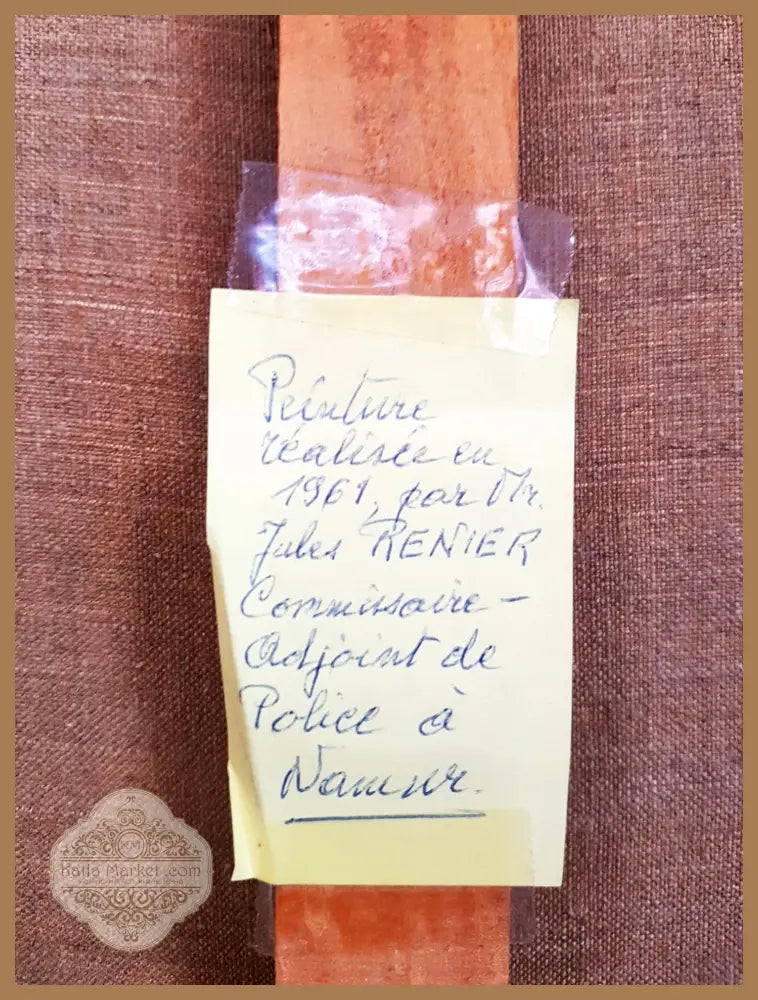 Peinture
réalisée en
1961, par Mr.
Jules RENIER
Commissaire-
Adjoint de
Police à
Namur.
Katia Market.com